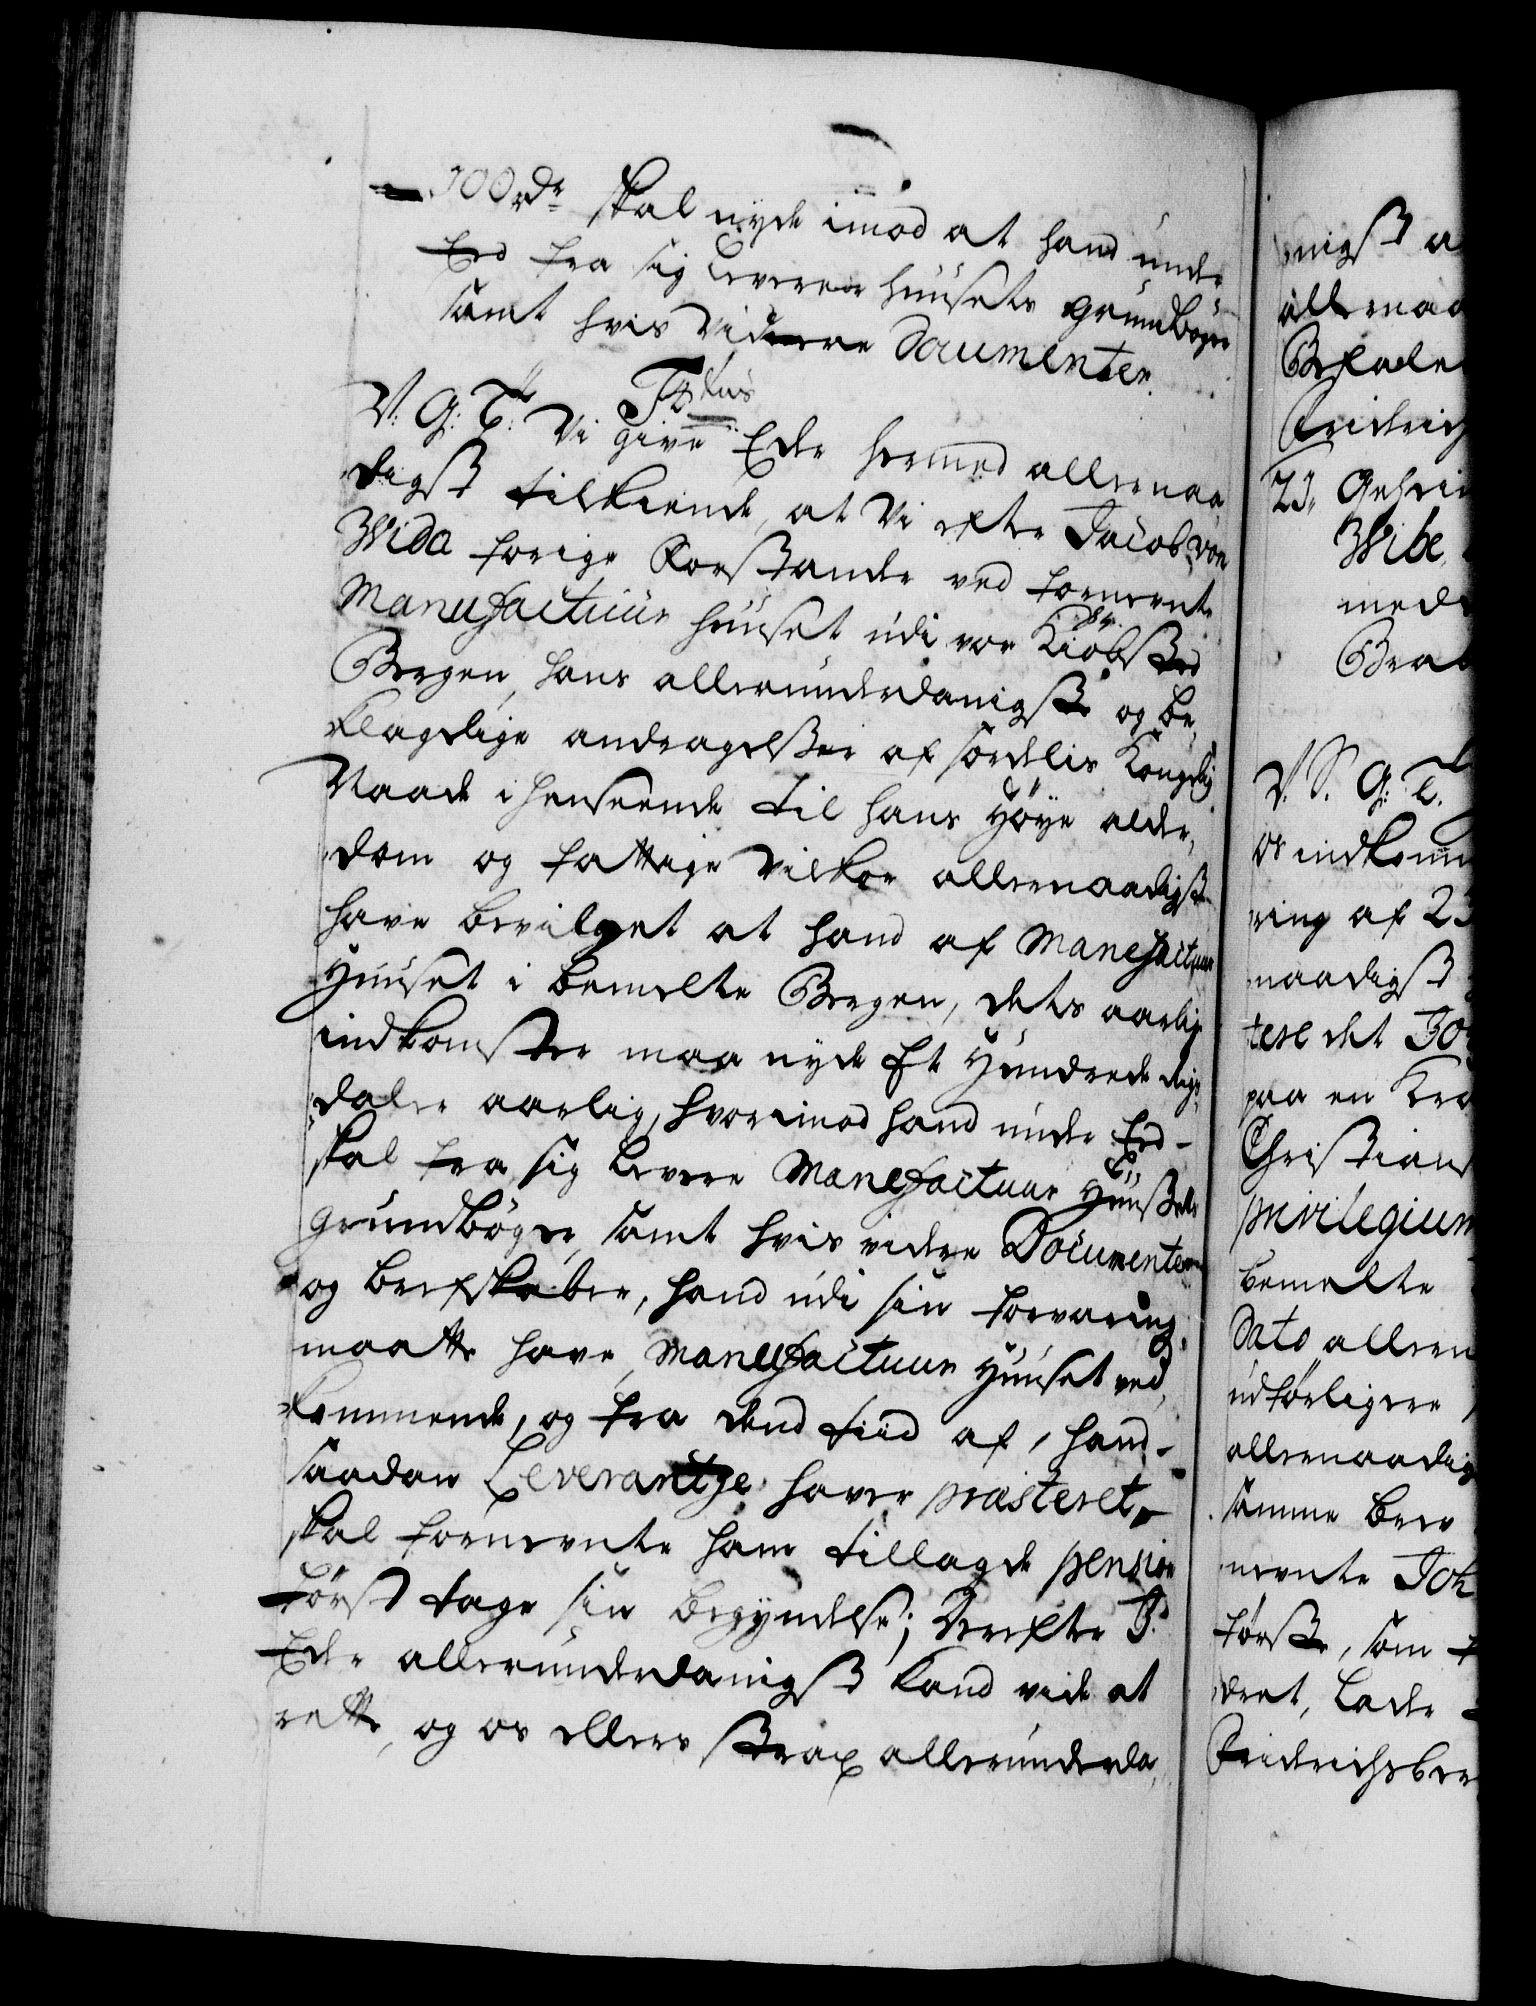 100 rdr skal nyde imod at hand under
Eed fra sig leverer huusets grundbøger
samt hvis videre Documenter.
V. G. T. Vi give Eder hermed allernaa-
digst tilkiende, at Vi efter Jacob von
Wida forige Forstander ved fornevnte
Manufactuur huuset udi vor Kiøbsted
Bergen, hans allerunderdanigste og be-
klagelige andragelsser af særdelis Kongelig
Naade i henseende til hans Høye alder-
dom og fattige vilkor allernaadigst
have bevilget at hand af Manefactuur
Huuset i bemelte Bergen, dets aarlig
indkomster maa nyde Et Hundrede Rigs-
daler aarlig, hvorimod hand under Eed
skal fra sig levere Manefactuur Huussets
grundbøger, samt hvis videre Documenter
og brefskaber, hand udi sin forvaring
maatte have, Manufactuur Huuset ved-
kommende, og fra dend tiid af, hand
saadan Leverantze haver præsteret,
skal fornevnte ham tillagde pension
først tage sin begyndelse; Derefter I
Eder allerunderdanigst kand vide at
rette, og os ellers strax allerunderda-
nigst a
allernaa
Befale
Friderich
23. Geheim
Wibe
med
V. S. G. T.
os indkomm
ring af 23
naadigst
tere det Jo
paa en Kra
Christians
privilegium
bemelte
Dato allern
udførligere
allernaadig
samme brev
nevnte Joh
første, som
dret, lade
Fridrichsber